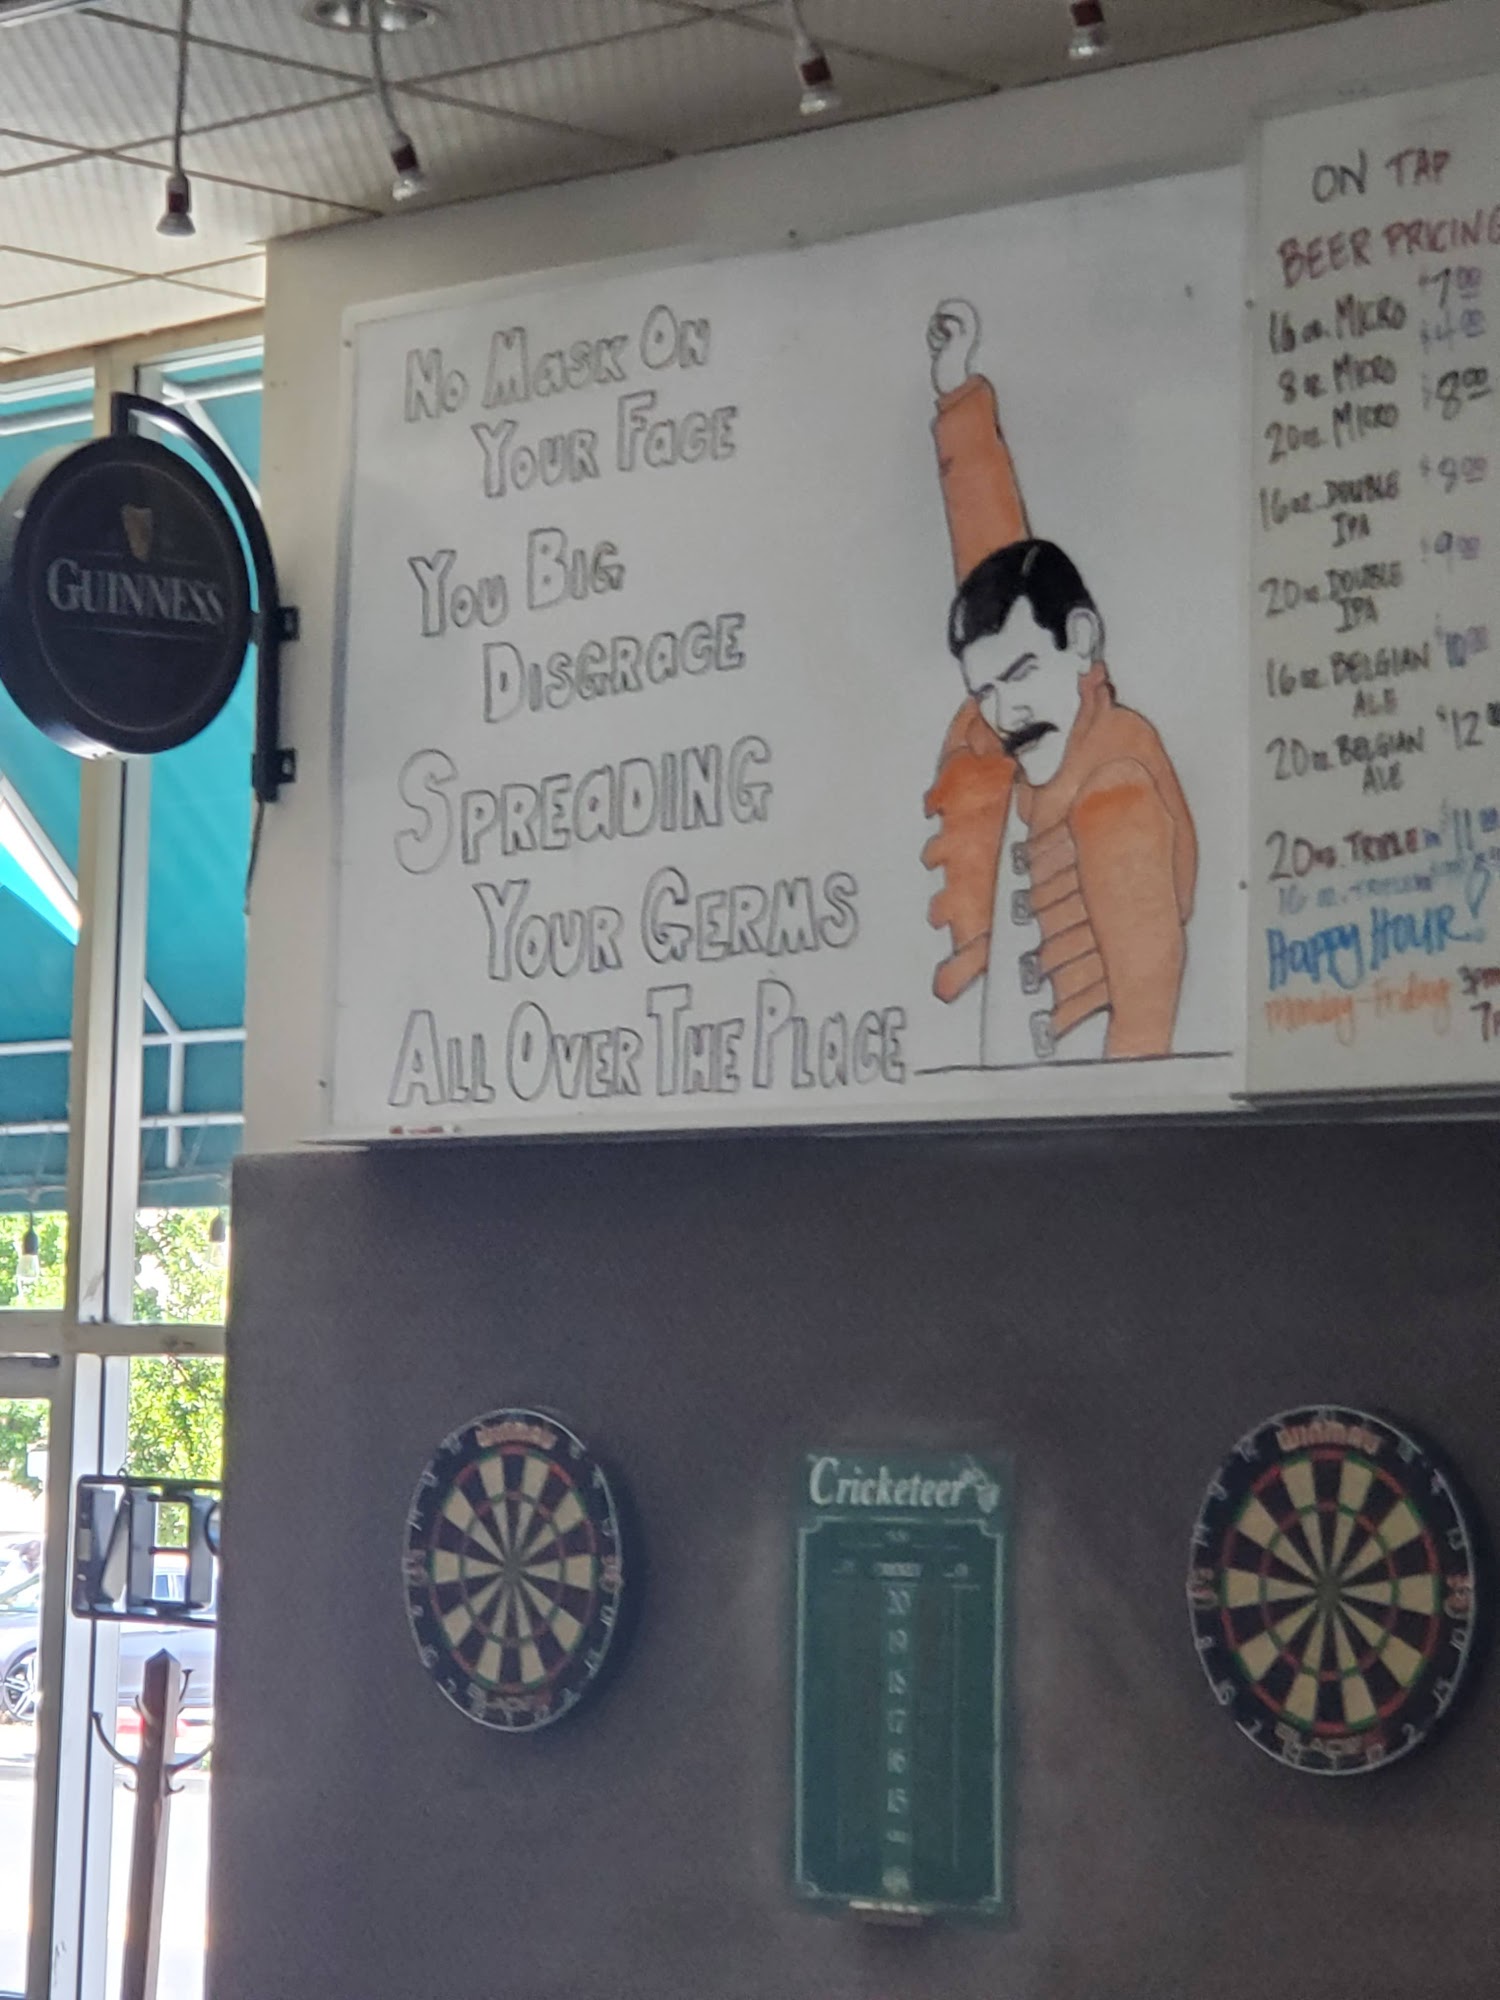 GUINNESS
NO MASK ON
YOUR FACE
YOU BIG
DISGRACE
SPREADING
YOUR GERMS
ALL OVER THE PLACE
ON TAP
BEER PRICING
16 oz. MICRO $7.00
8 oz MICRO $4.00
20 oz. MICRO $8.00
16 oz. DOUBLE $8.00
IPA
20 oz. DOUBLE $9.00
IPA
16 oz BELGIAN $10.00
ALE
20 oz BELGIAN $12
ALE
20 oz. TRIPLE $11.00
HAPPY HOUR!
Monday-Friday 3pm
7
WINMAU
Cricketeer
20
19
18
17
16
15
WINMAU